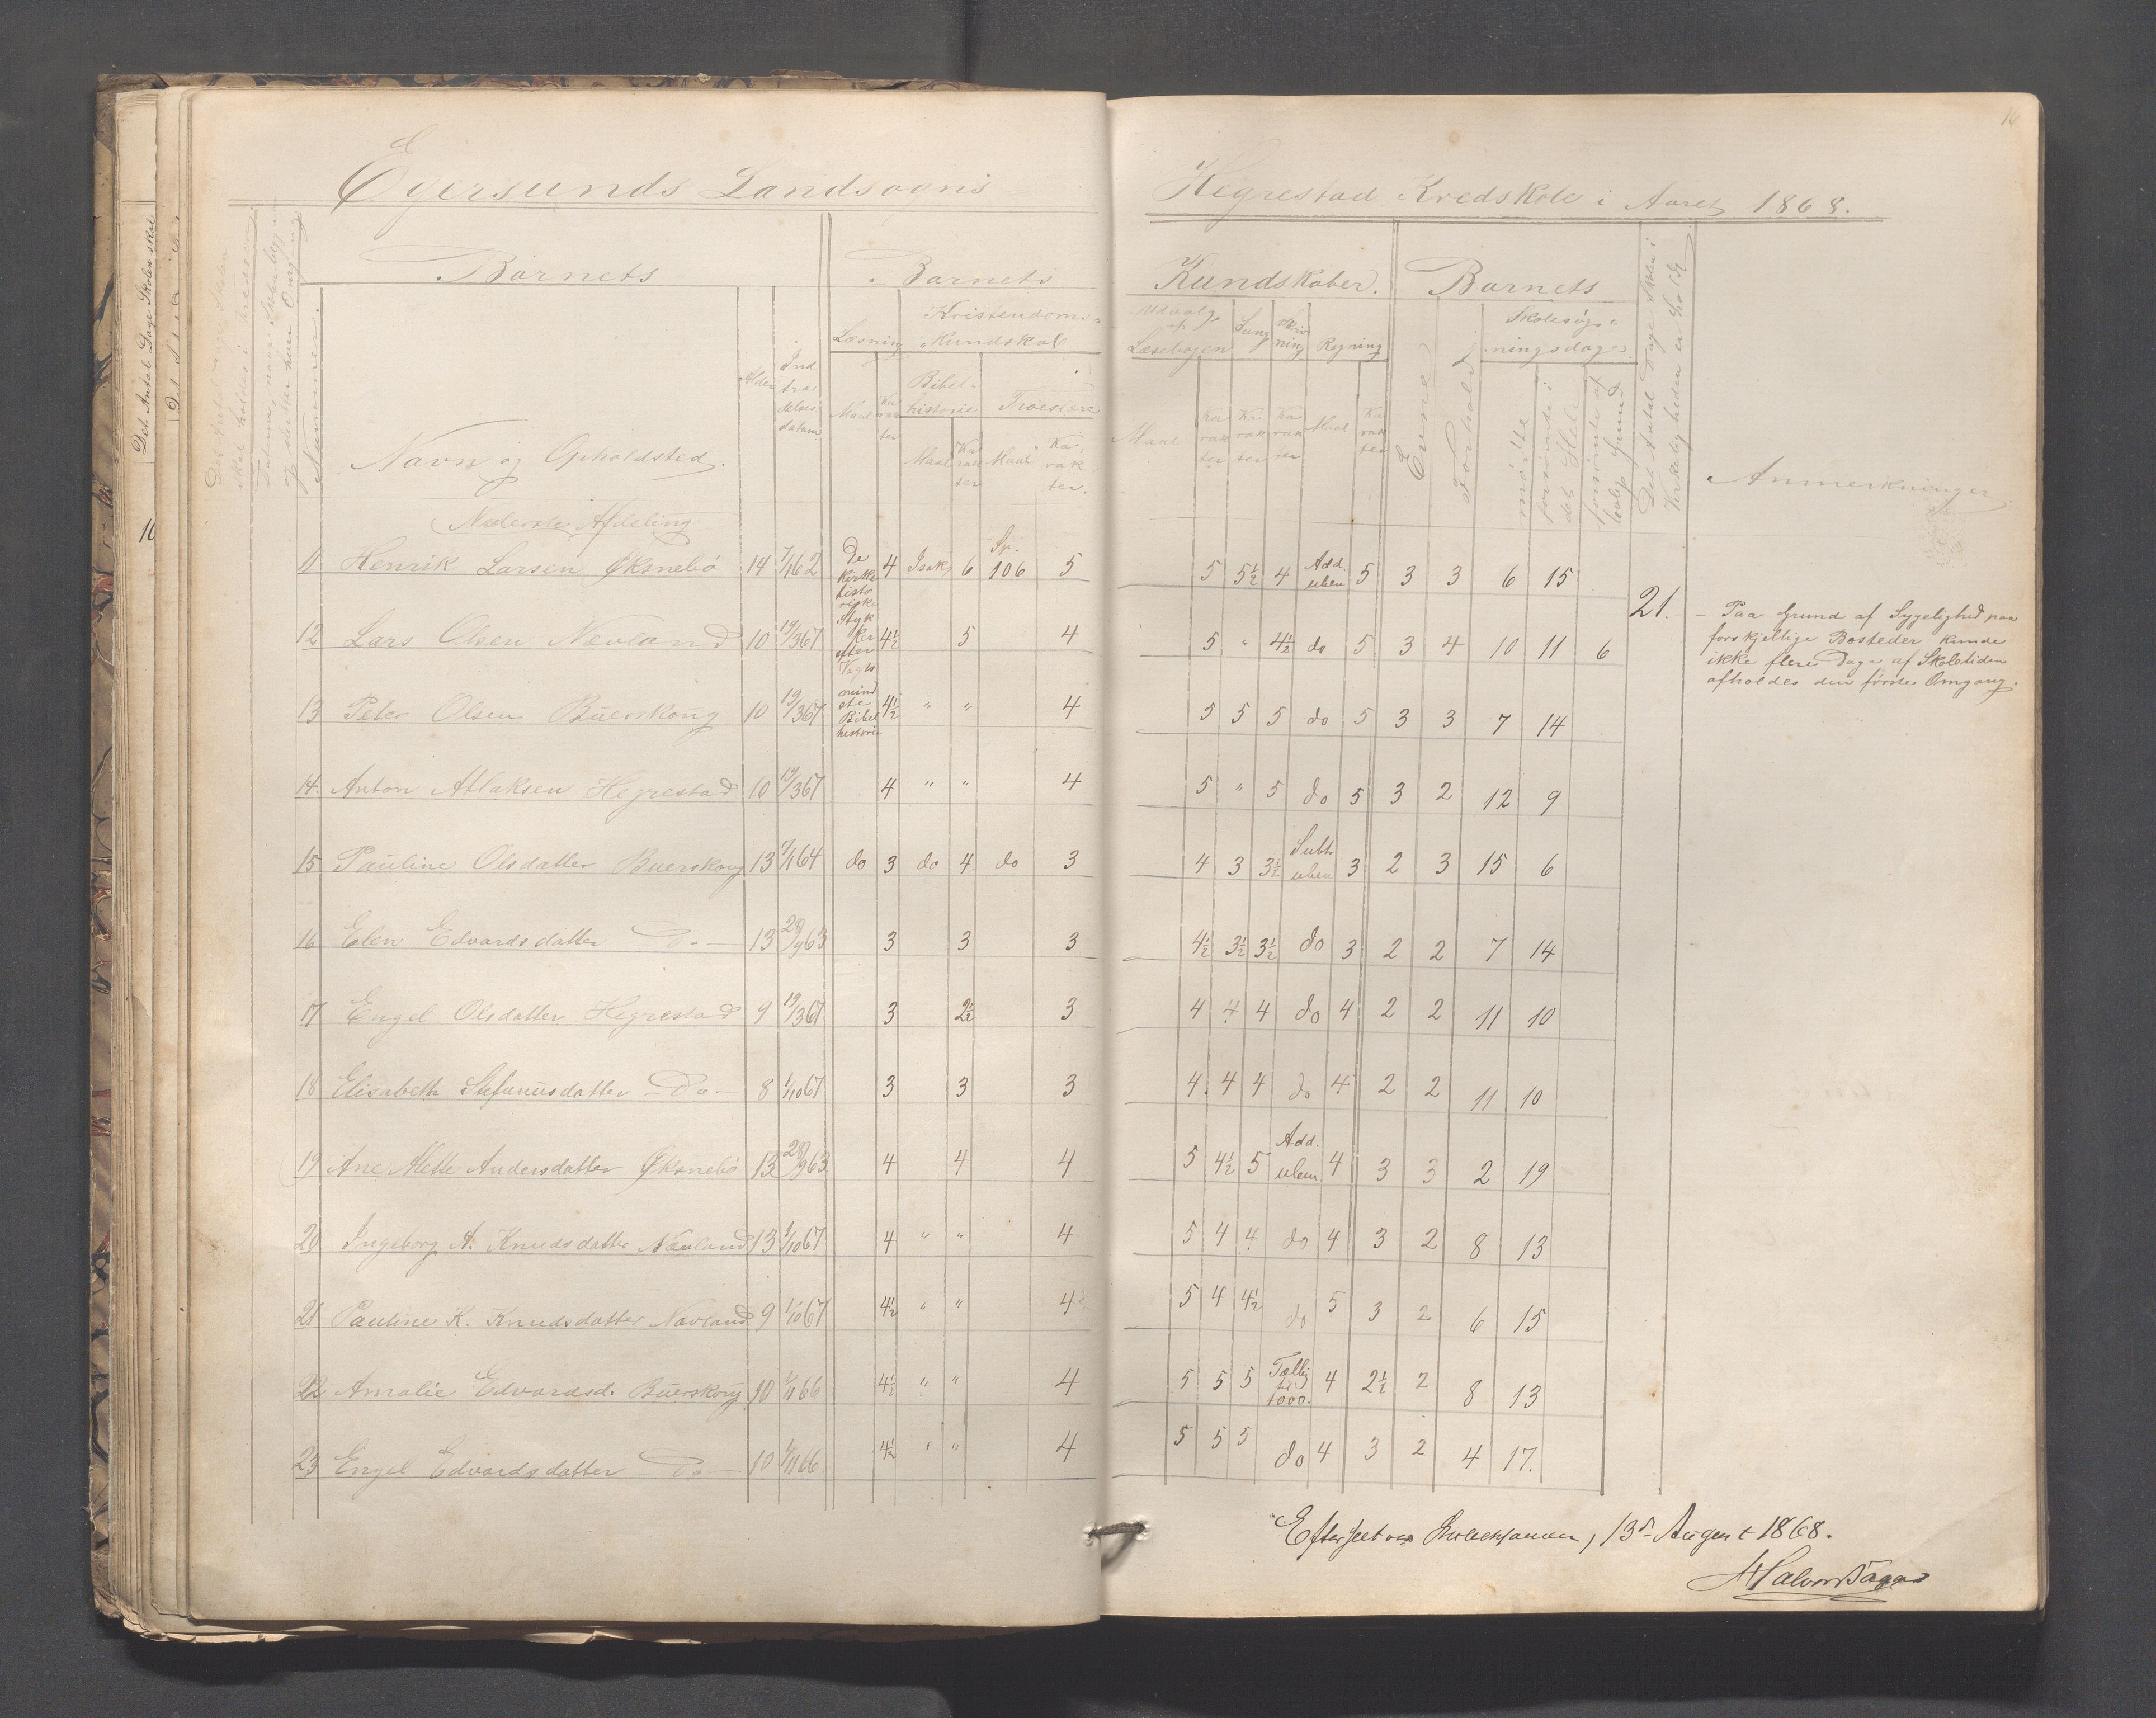 Egersunds Landsogns
Hegrestad Kredskole i Aaret 1868.
16
Det Antal Dage Skolen skal
Barnets
Barnets
Kundskaber.
Barnets
Nummer.
Navn og Opholdsted.
Alder
Indtrædelsesdatum
Læsning
Kristendoms-
Kundskab
Bibel-
historie
Troeslære
Maal
Karakter
Maal
Karakter
Maal
Karakter.
Udvalg
af
Læsebogen
Sang
Skrivning
Regning
Maal
Karakter
Karakter
Karakter
Maal
Karakter
Evne
Forhold
Skolesøg-
ningsdage
mødte
forsømte i
det Hele
forsømte af
lovlig Grund
Det Antal Dage Skolen i
Virkeligheden er holdt
Anmerkninger
Nederste Afdeling
11 Henrik Larsen Øksnebö 14 7/1 62 De kirkehistoriske Stykker efter Vogts mindste Bibelhistorie 4 Isak 6 Sp. 106 5 5 5½ 4 Add. uben 5 3 3 6 15
21.
12 Lars Olsen Nævland 10 19/3 67 4½ 5 4 5 " 4½ do 5 3 4 10 11 6
- Paa Grund af Sygelighed paa
forskjellige Bosteder kunde
ikke flere Dage af Skoletiden
afholdes den første Omgang.
13 Peter Olsen Buerskoug 10 19/3 67 4½ " " 4 5 5 5 do 5 3 3 7 14
14 Anton Atlaksen Hegrestad 10 19/3 67 4 " " 4 5 " 5 do 5 3 2 12 9
15 Pauline Olsdatter Buerskoug 13 7/1 64 do 3 do 4 do 3 4 3 3½ Subtr. uben 3 2 3 15 6
16 Elen Edvardsdatter - Do - 13 28/9 63 3 3 3 4½ 3½ 3½ do 3 2 2 7 14
17 Engel Olsdatter Hegrestad 9 19/3 67 3 2½ 3 4 4 4 do 4 2 2 11 10
18 Elisabeth Stefanusdatter - Do - 8 1/10 67 3 3 3 4 4 4 do 4 2 2 11 10
19 Ane Mette Andersdatter Øksnebö 13 28/9 63 4 4 4 5 4½ 5 Add. uben 4 3 3 2 19
20 Ingeborg A. Knudsdatter Nævland 13 1/10 67 4 " " 4 5 4 4 do 4 3 2 8 13
21 Pauline K. Knudsdatter Nævland 9 1/10 67 4½ " " 4 5 4 4½ do 5 3 2 6 15
22 Amalie Edvardsd. Buerskoug 10 1/11 66 4½ " " 4 5 5 5 Tællig til 1000. 4 2½ 2 8 13
23 Engel Edvardsdatter - Do - 10 1/11 66 4½ " " 4 5 5 5 do 4 3 2 4 17.
Efterseet 13de August 1868.